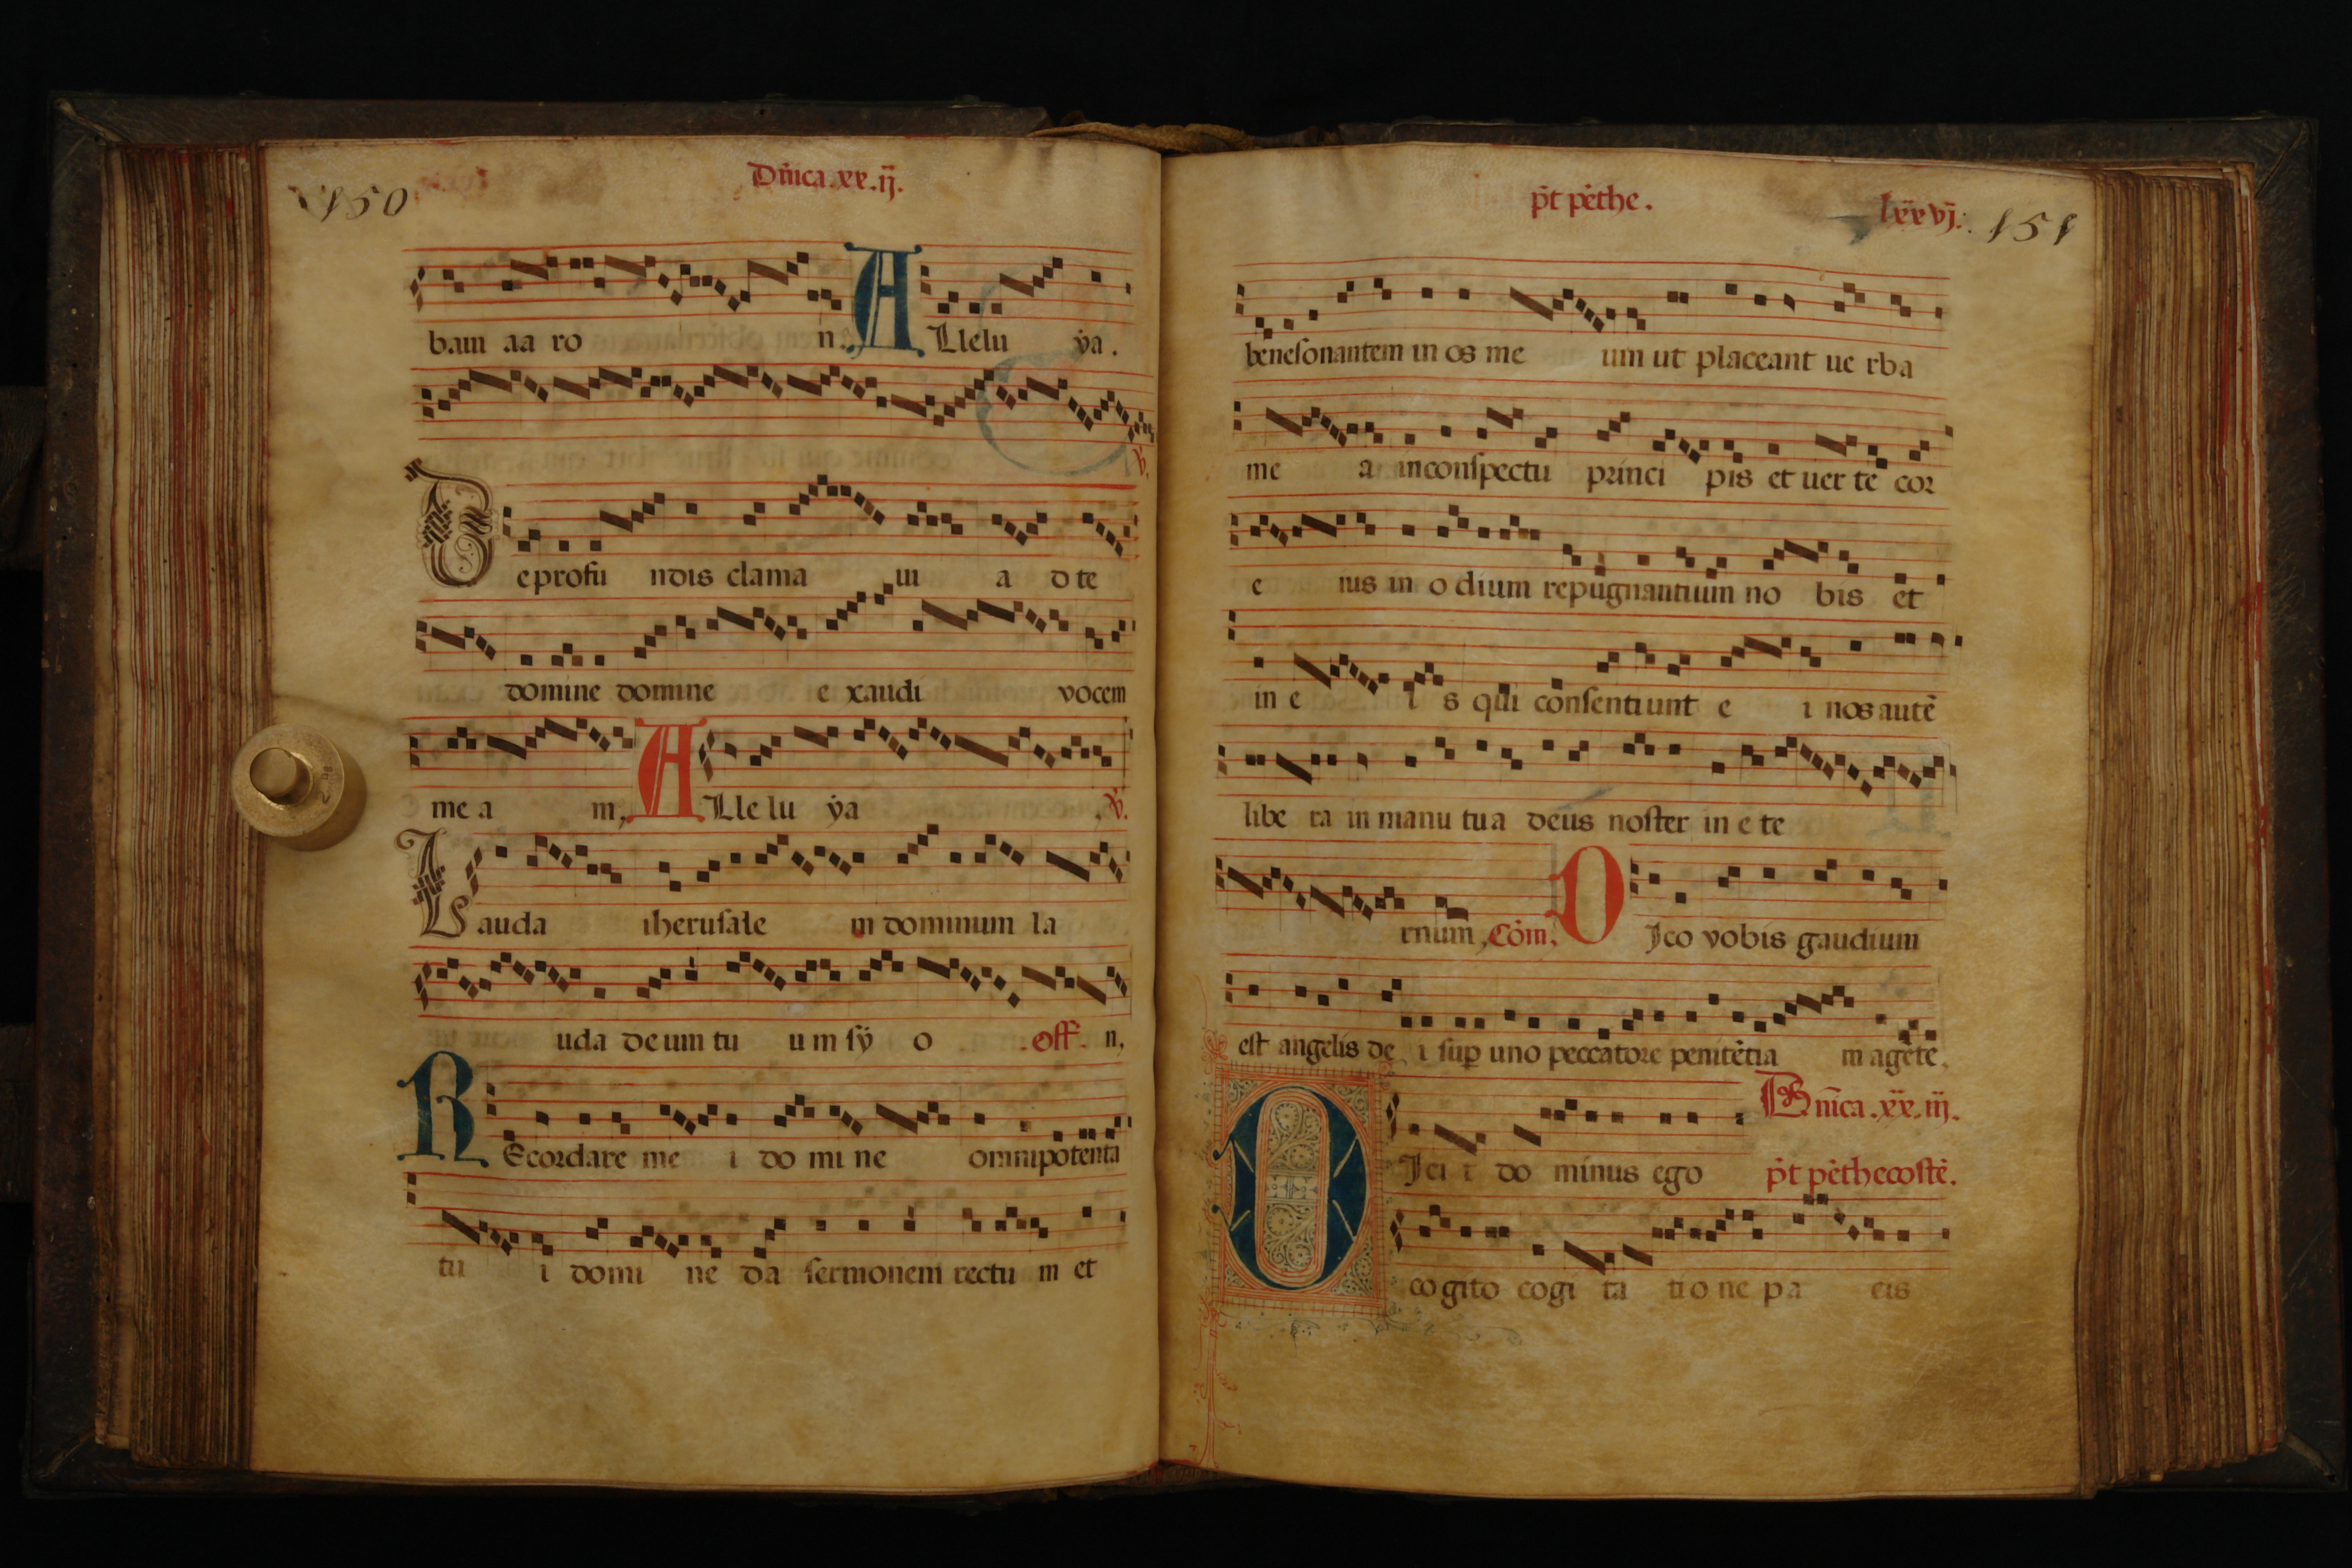 150
Dn̄ica.xx.ij.
bam aa ro n. ALlelu ẏa.
℣.
Deprofu ndis clama ui a d te
domine domine e xaudi vocem
me a m, ALle lu ẏa ℣.
Lauda iherusale m dominum la
uda deum tu um sẏ o .off. n,
REcordare me i do mi ne omnipotenta
tu i domi ne da sermonem rectu m et
p̄t pēthe.
lxxvj. 151
benesonantem in os me um ut placeant ue rba
me a inconspectu princi pis et uer te cor
e ius in o dium repugnantium no bis et
in e i s qui consentiunt e i nos autē
libe ra in manu tua deus noster in e te
rnum, Cōm, DIco vobis gaudium
est angelis de i sup uno peccatore penitētia m agētē.
Dn̄ica.xx.iij.
DIci t do minus ego p̄t pēthecostē.
cogito cogi ta tio ne pa cis